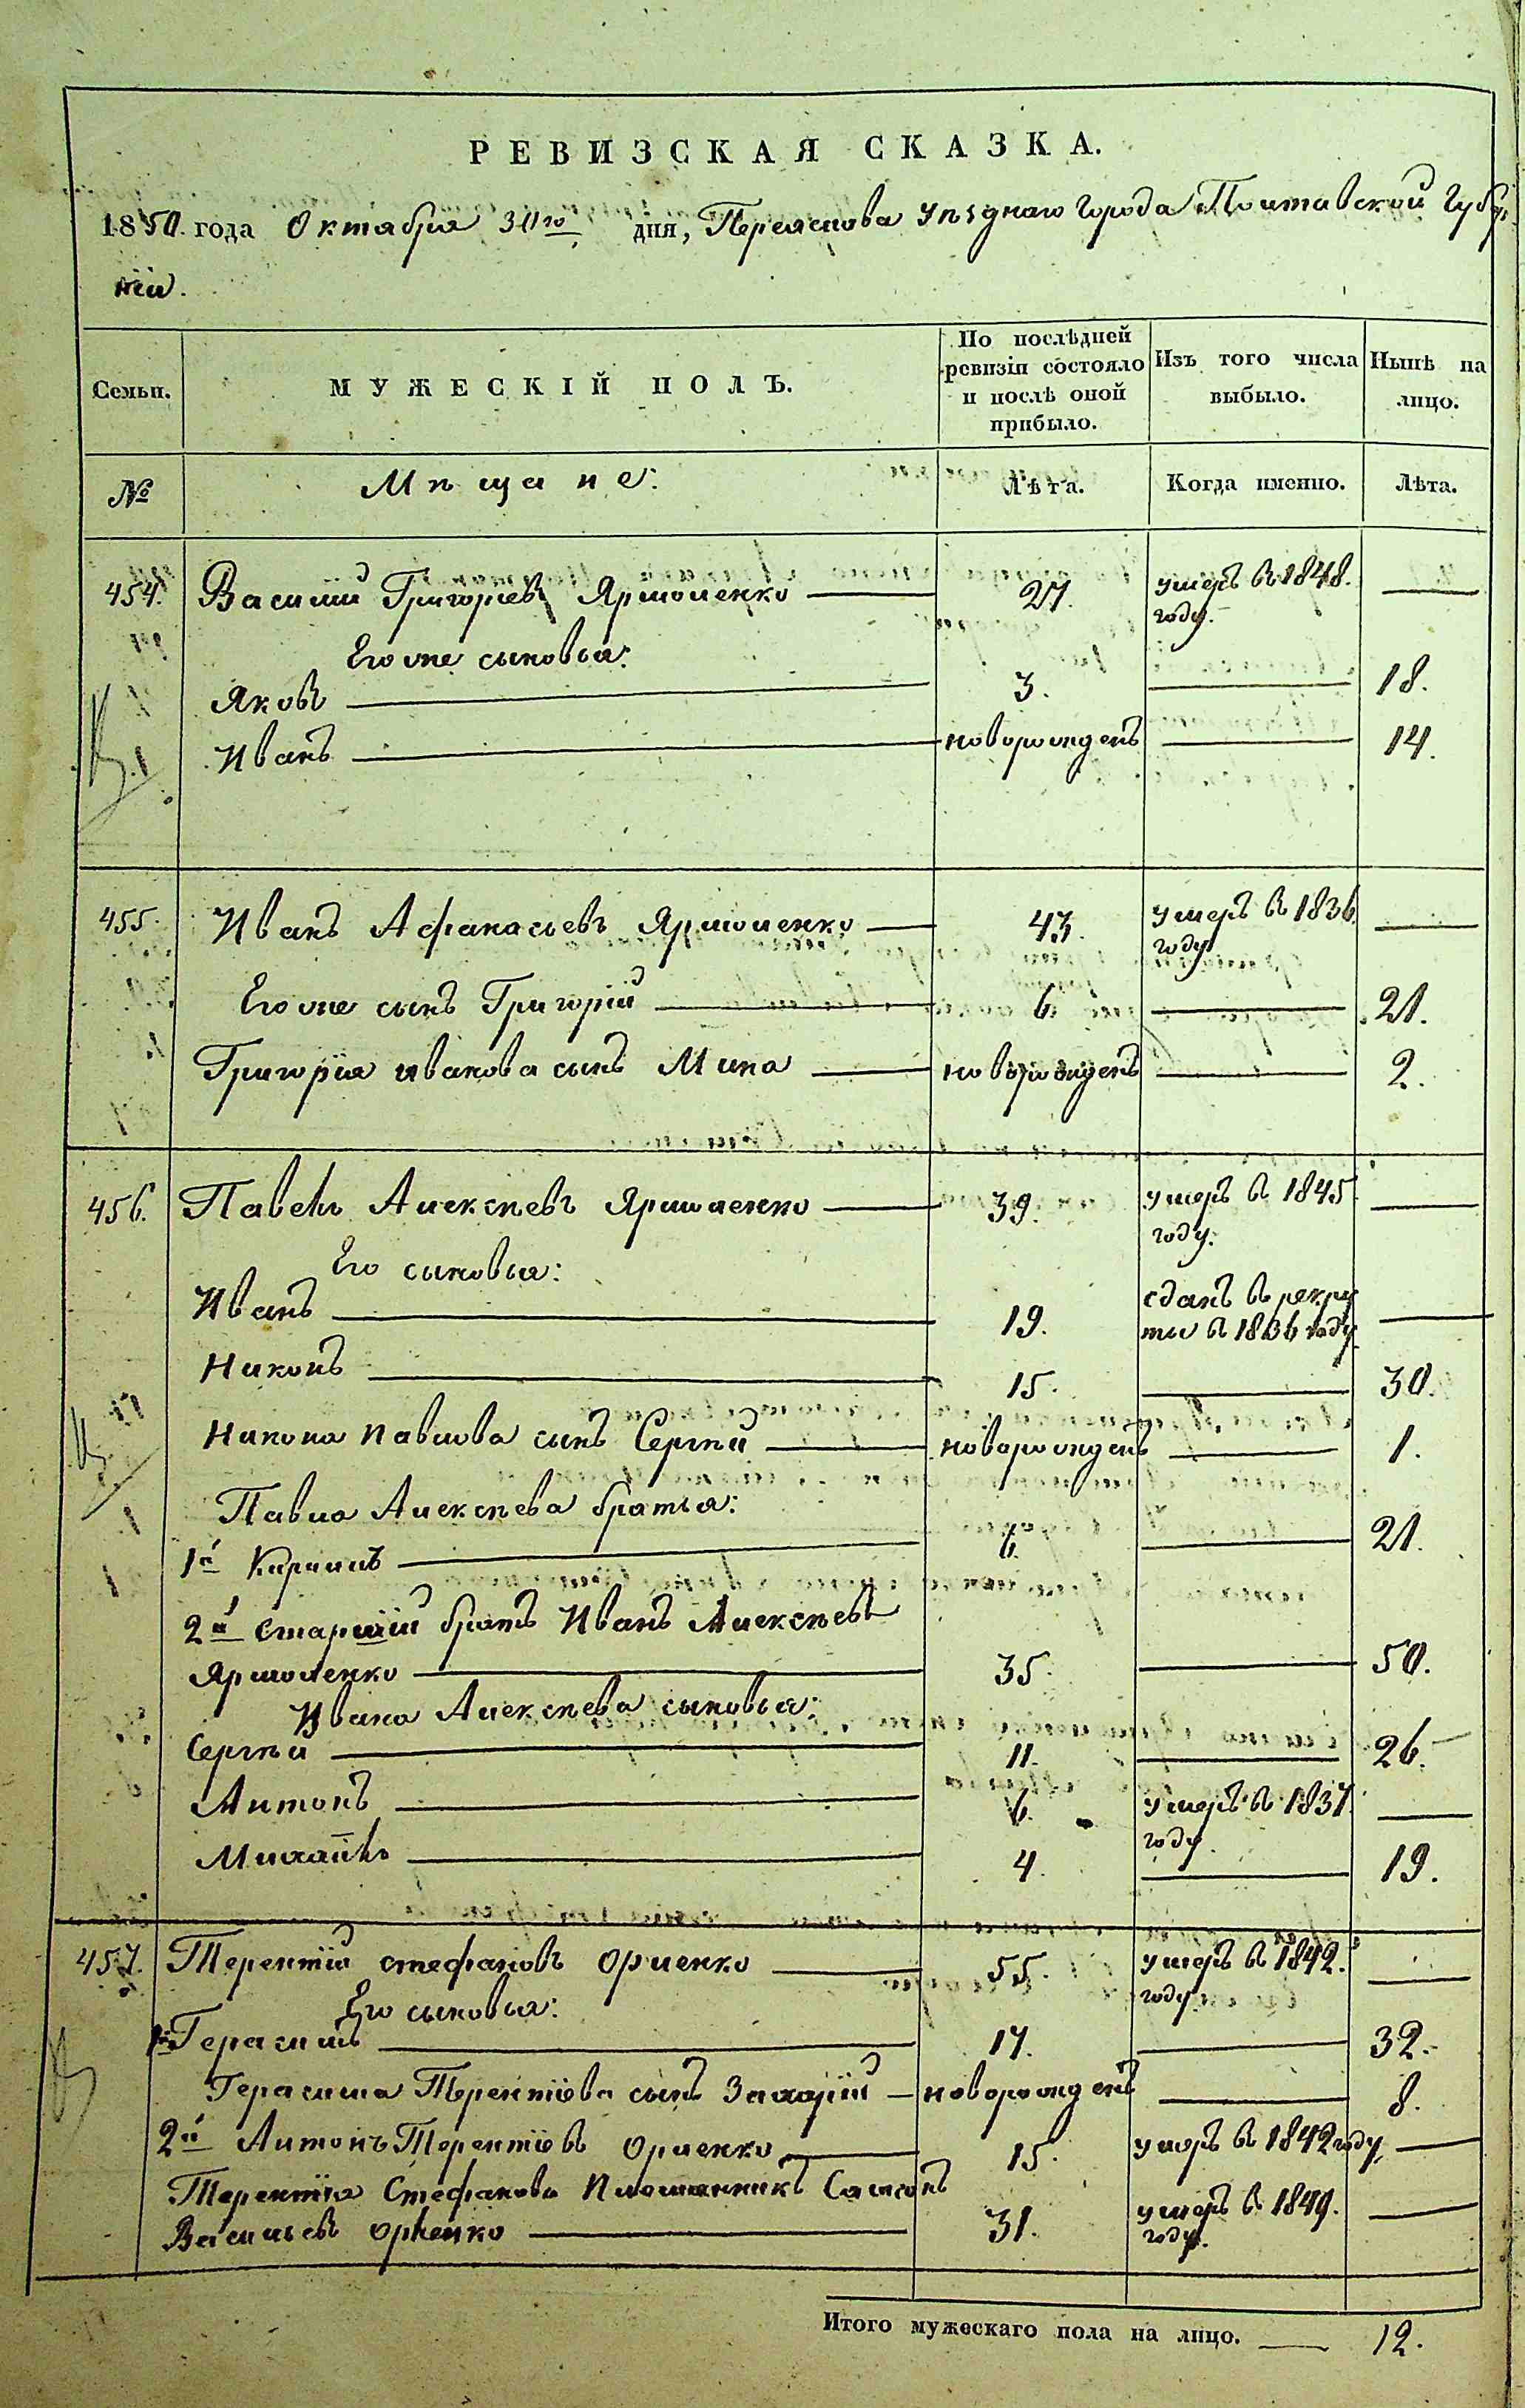 РЕВИЗСКАЯ СКАЗКА.
1850. года Октября 30го дня, Переяслова уѣзднаго города Полтавской Губер
ніи.
Семьи. МУЖЕСКІЙ ПОЛЪ. По послѣдней ревизіи состояло и послѣ оной прибыло. Изъ того числа выбыло. Нынѣ на лицо.
№ Мѣщане: Лѣта. Когда именно. Лѣта.
454. Василий Григорьевъ Ярмоленко — 27. умеръ въ 1848. году. —
Его же сыновья:
Яковъ — 3. — 18.
Иванъ — новорожденъ — 14.
455. Иванъ Афанасьевъ Ярмоленко — 43. умеръ въ 1836 году —
Его же сынъ Григорій — 6. — 21.
Григорія Иванова сынъ Мина — новорожденъ — 2.
456. Павелъ Алексѣевъ Ярмоленко — 39. умеръ въ 1845 году. —
Его сыновья:
Иванъ — 19. сданъ въ рекру
ты въ 1836 году. —
Никонъ — 15. — 30.
Никона Павлова сынъ Сергѣй — новорожденъ — 1.
Павла Алексѣева братья:
1й Кирилъ — 6. — 21.
2й старшій братъ Иванъ Алексѣевъ
Ярмоленко — 35. — 50.
Ивана Алексѣева сыновья:
Сергѣй — 11. — 26.
Антонъ — 6. умеръ въ 1837 году. —
Михаилъ — 4. — 19.
457. Терентій Стефановъ Орленко — 55. умеръ въ 1842. году. —
Его сыновья:
1й Герасимъ — 17. — 32.
Герасима Терентіева сынъ Захарій — новорожденъ — 8.
2й Антонъ Терентіевъ Орленко — 15. умеръ въ 1842 году, —
Терентія Стефанова племянникъ Самсонъ
Васильевъ Орленко — 31. умеръ въ 1849. году. —
Итого мужескаго пола на лицо. — 12.